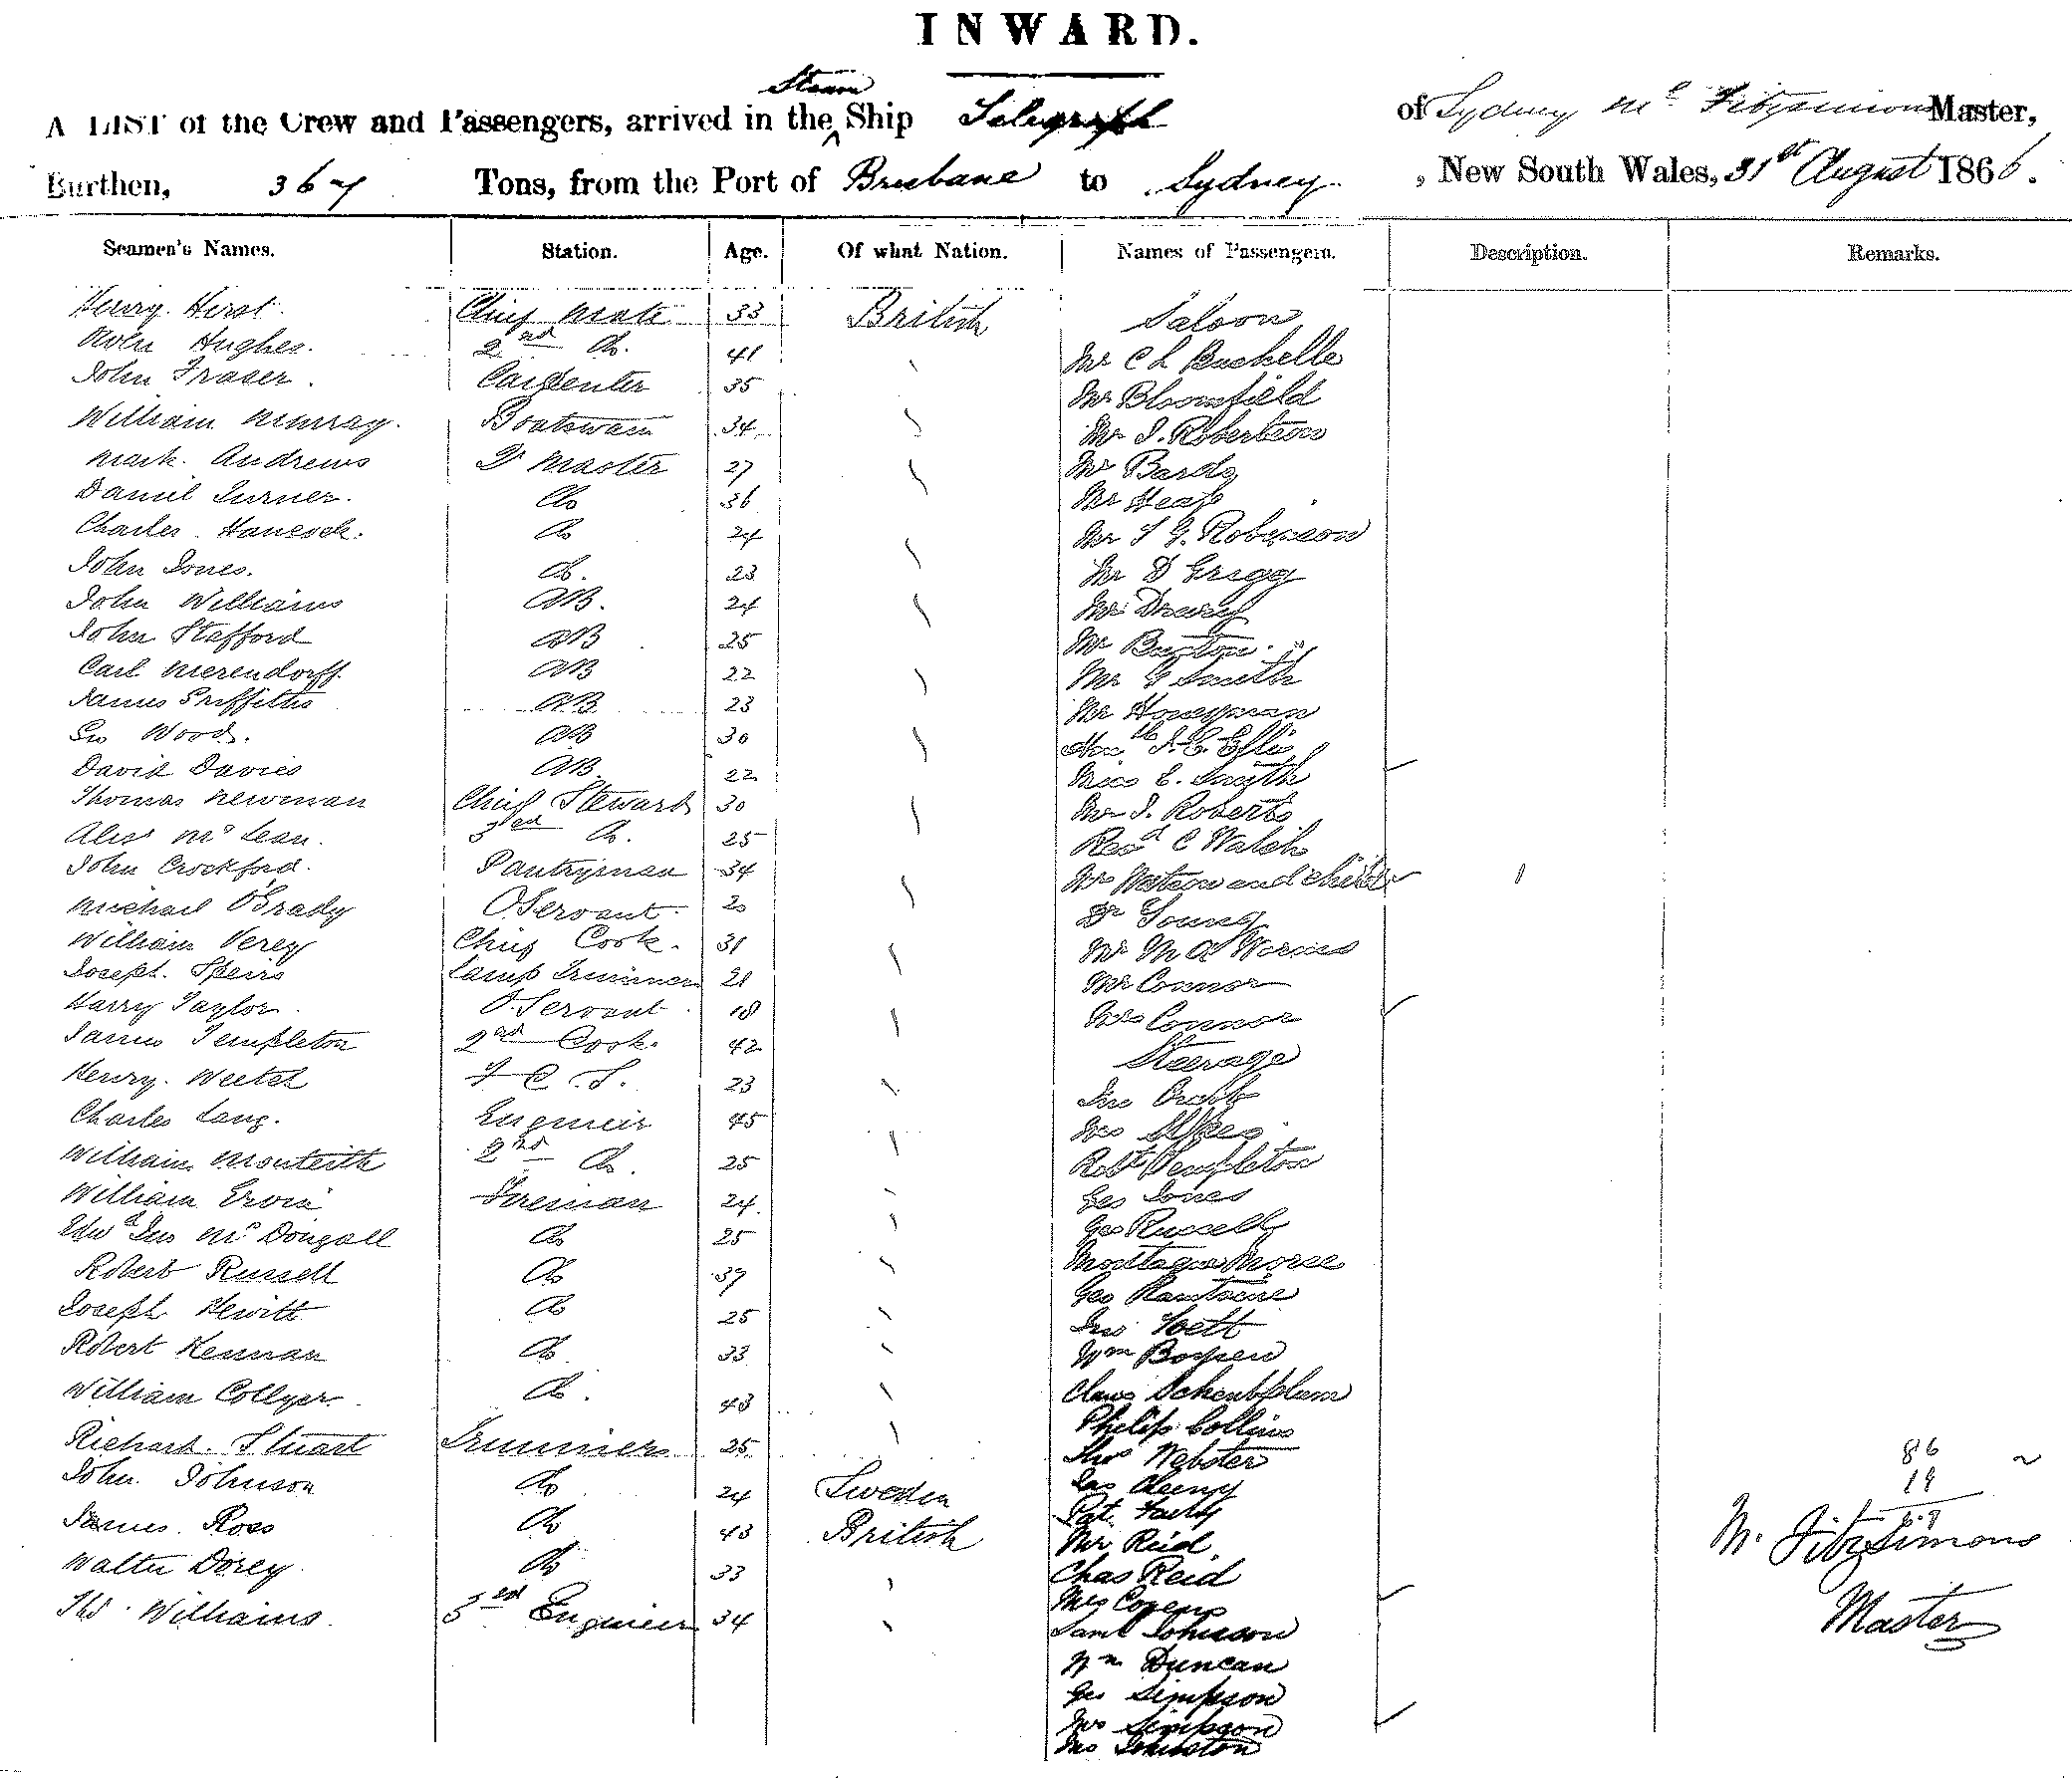 INWARD.
Steam
A LIST of the Crew and Passengers, arrived in the ^ Ship Telegraph of Sydney Mc Fitzsimons Master,
Burthen, 367 Tons, from the Port of Brisbane to Sydney , New South Wales, 31st August 1866.
Seamen's Names. Station. Age. Of what Nation. Names of Passengers. Description. Remarks.
Henry Hirst Chief Mate 33 British Saloon
Hughes. 2nd Do. 41 Mr C L Buchelle
John Fraser. Carpenter 35 Mr Bloomfield
William Murray. Boatswain 34 Mr J. Robertson
Mark. Andrews Qr Master 27 Mr Bards
Daniel Turner. Do 36 Mr Heap
Charles Hancock. Do 24 Mr T G. Roberson
John Jones. Do. 23 Mr D Grigg
John Williams AB. 24 Mr Drury
John Stafford AB 25 Mr Buxton
Carl Merendorff AB 22 Mr G Smith
James Griffiths AB 23 Mr Honeyman
Geo Wood. AB 30 Honble
David Davies AB 22 Miss E. Smyth
Thomas Newman Chief Steward 30 Mr J. Roberts
Alexr McLean. 3rd Do. 25 Revd C Walsh
John Crockford. Pantryman 34 Mrs Watson and child
Michael O'Brady O.Servant. 20 Dr Young
William Verey Chief Cook. 31 Mr M A
Joseph. Speirs Lamp Trimmer 21 Mr Connor
Harry Taylor O.Servant 18 Mrs Connor
James Templeton 2nd Cook. 42 Steerage
Henry. F C. S. 23 Jno
Charles Lang. Engineer 45
William Monteith 2nd Do. 25 Robt Templeton
William Ervin Fireman 24 Geo Jones
Edwd Jno McDougall Do 25 Geo Russell
Robert Russell Do 39 Montague Morse
Joseph Hewitt Do 25 Geo
Robert Kennan Do 33 Jno
Wm
William Collyer Do. 43 Claus
Philip Collins
Richard. Stuart Trimmer 25 Thos Webster
John. Johnson Do 24 Sweden Jas
Pat.
James. Ross Do 43 British Mr Reid
Walter Dorey Do 33 Chas Reid
Mrs Cozens
Thos Williams 3rd Engineer 34 Saml Johnson
Wm Duncan
Geo Simpson
Mrs Simpson
Mrs Johnston
86
19
M. Fitzsimons
Master